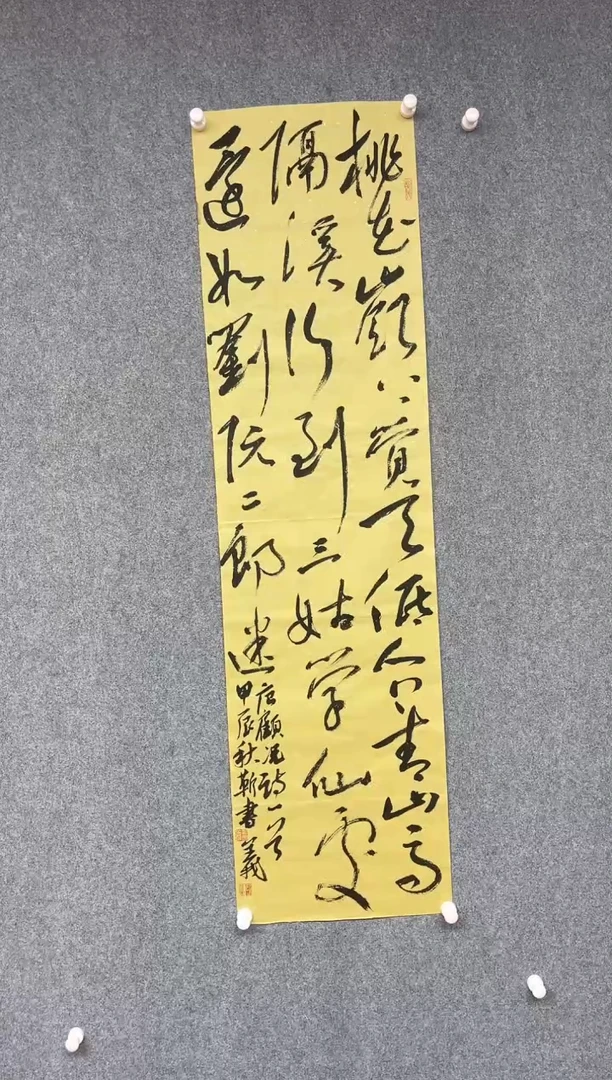 桃花嶺上覺天低人上青山馬
隔溪行到三姑学仙處
還如劉阮二郎迷
唐顧况詩一首
甲辰秋靳書義